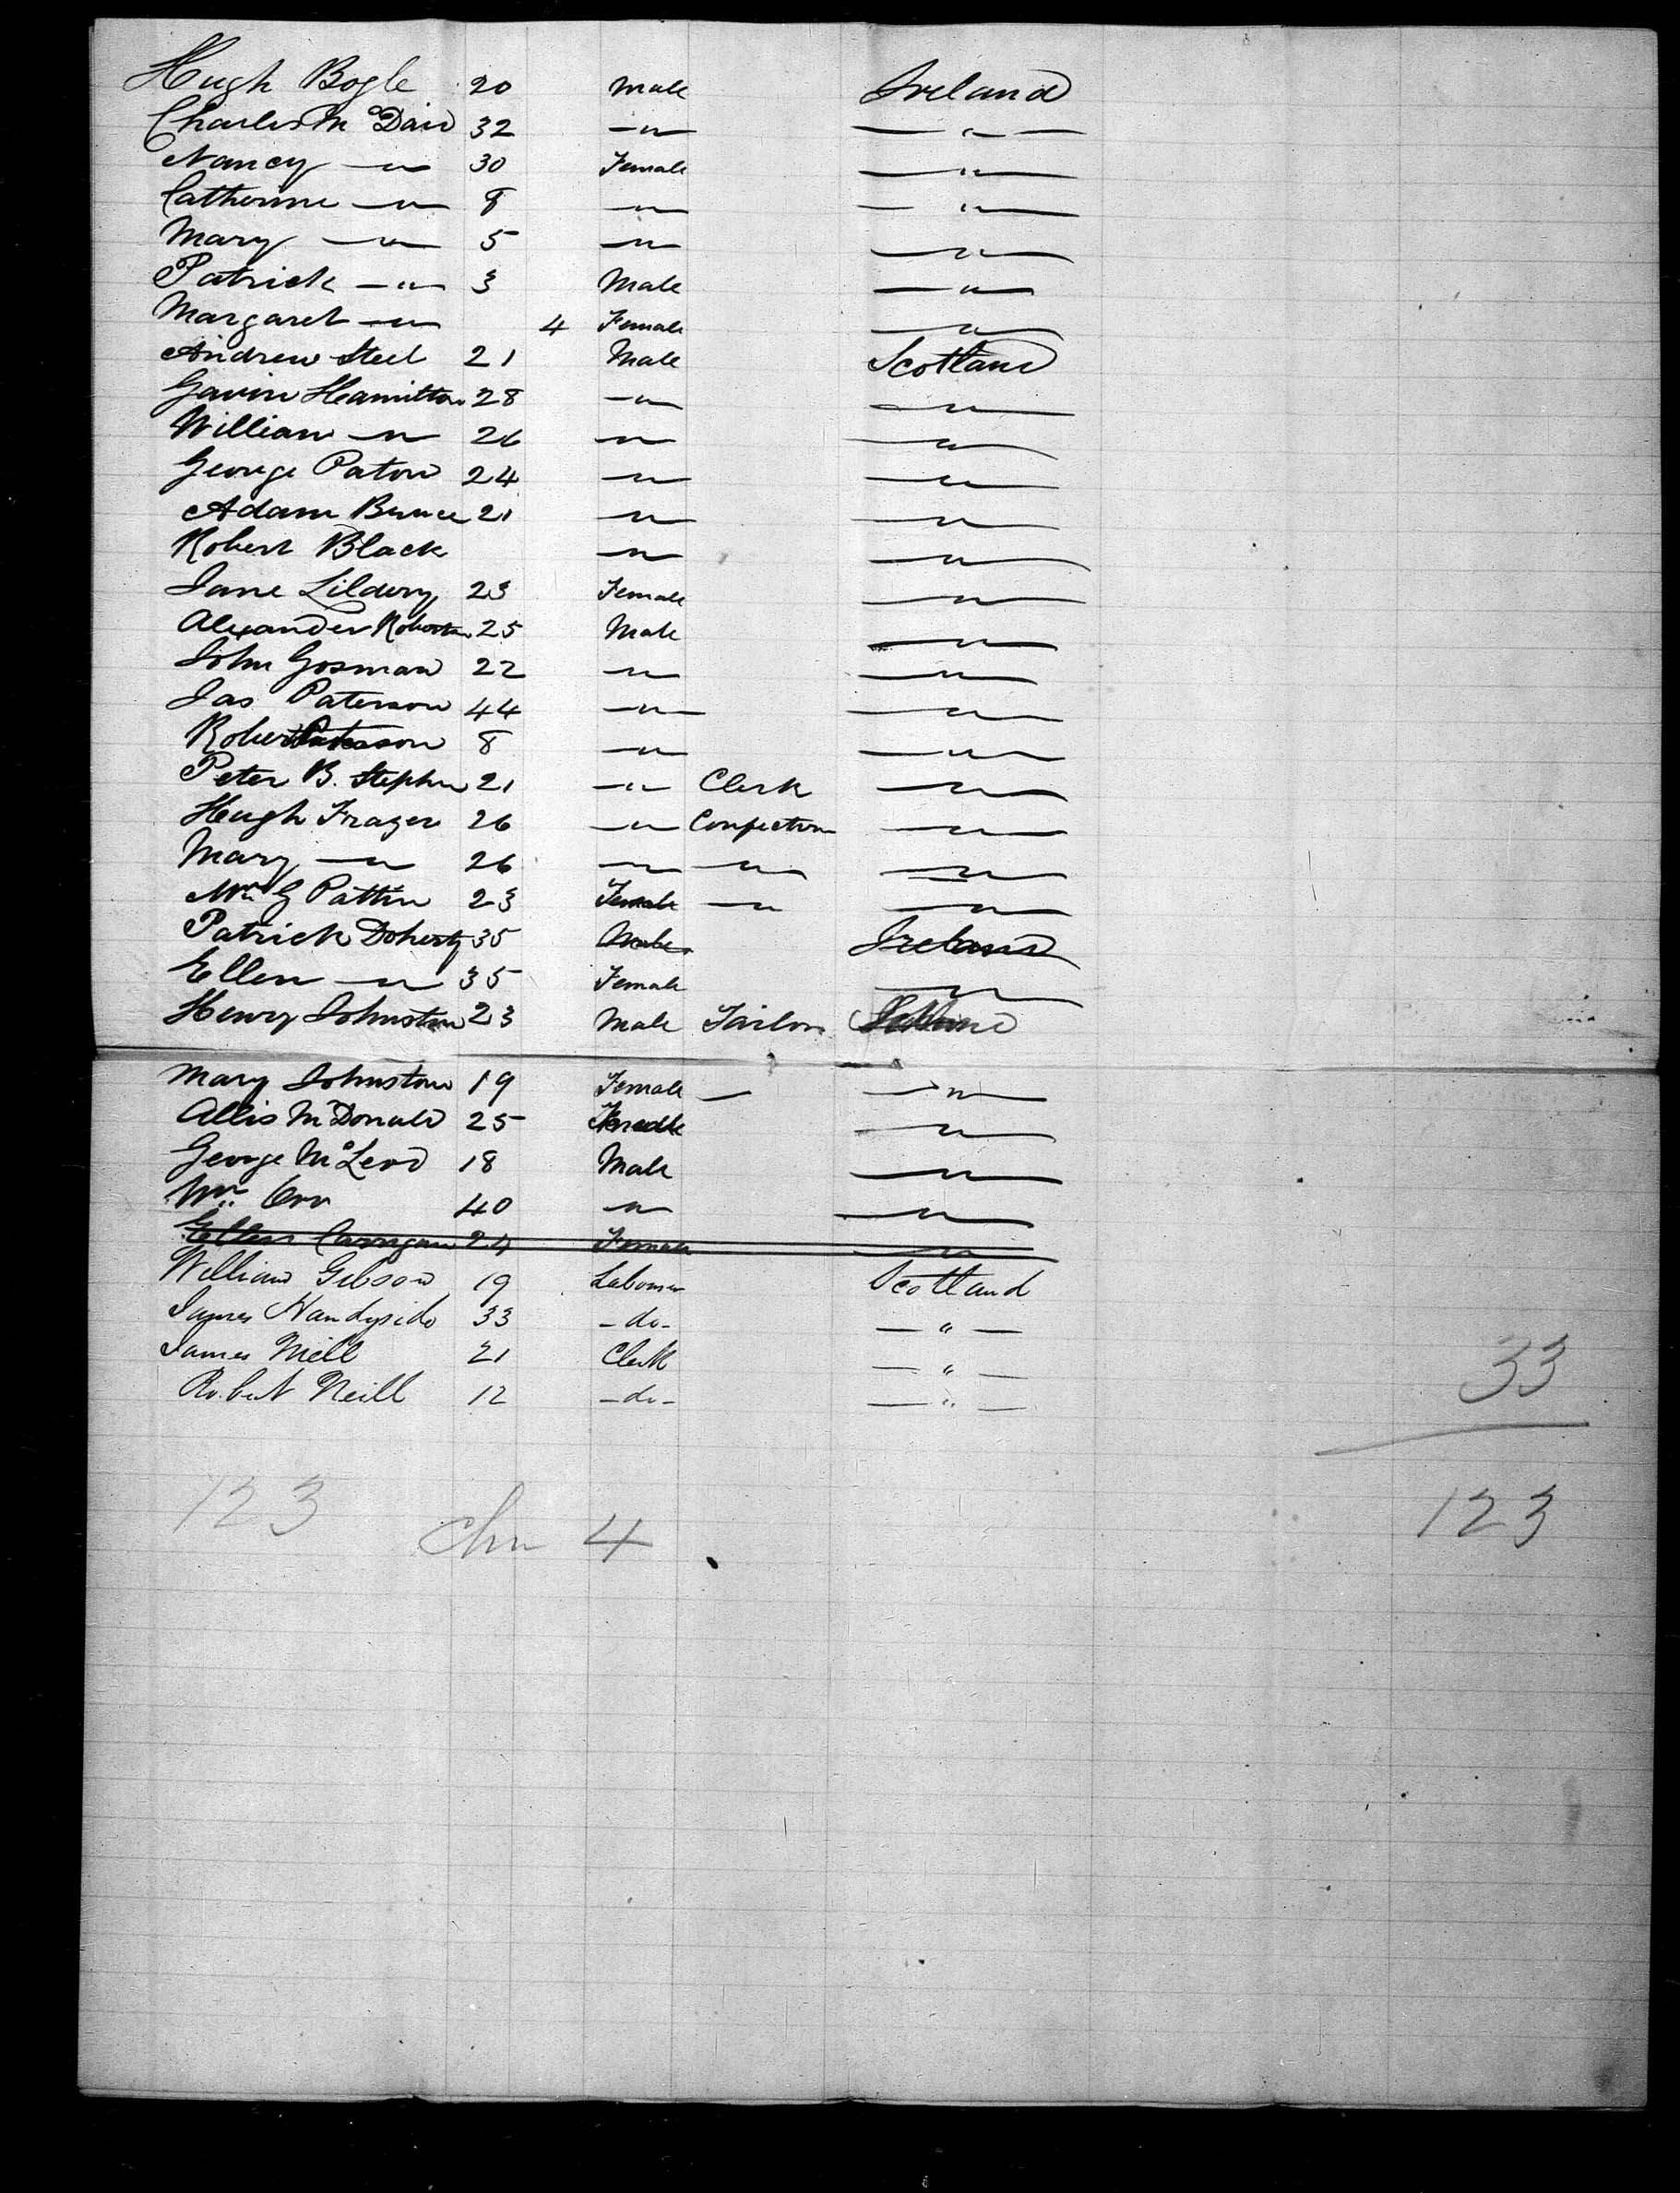 Hugh Bogle 20 Male Ireland
Charles McDaid 32 — " — — " —
Nancy — " — 30 Female — " —
Catherine — " — 8 — " — — " —
Mary — " — 5 — " — — " —
Patrick — " — 3 Male — " —
Margaret — " — 4 Female — " —
Andrew Steel 21 Male Scotland
Gavin Hamilton 28 — " — — " —
William — " — 26 — " — — " —
George Paton 24 — " — — " —
Adam Bruce 21 — " — — " —
Robert Black — " — — " —
Jane 23 Female — " —
Alexander Robertson 25 Male — " —
John Gosman 22 — " — — " —
Jas Paterson 44 — " — — " —
Robert Paterson 8 — " — — " —
Peter B. Stephen 21 — " — Clerk — " —
Hugh Frazer 26 — " — Confection — " —
Mary — " — 26 — " — — " — — " —
G Pattin 23 Female — " — — " —
Patrick Doherty 35 Male Ireland
Ellen — " — 35 Female — " —
Henry Johnston 23 Male Tailor
Mary Johnston 19 Female — — " —
Allis McDonald 25 — " —
George McLeod 18 Male — " —
Wm Orr 40 " — " —
Ellen Corrigan 24 Female — " —
William Gibson 19 Labourer Scotland
James Handyside 33 - do - — " —
James Neill 21 Clerk — " —
Robert Neill 12 - do - — " —
33
123
123
4